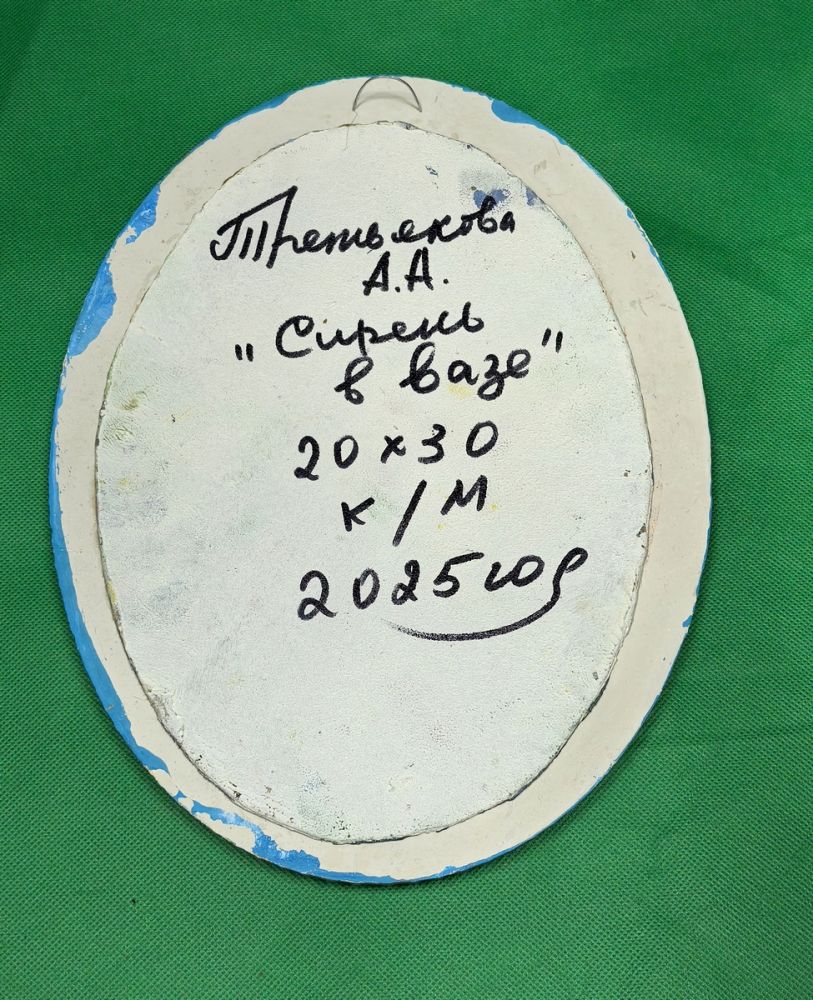 Третьякова
А.А.
"Сирень
в вазе"
20 х 30
к / м
2025 год